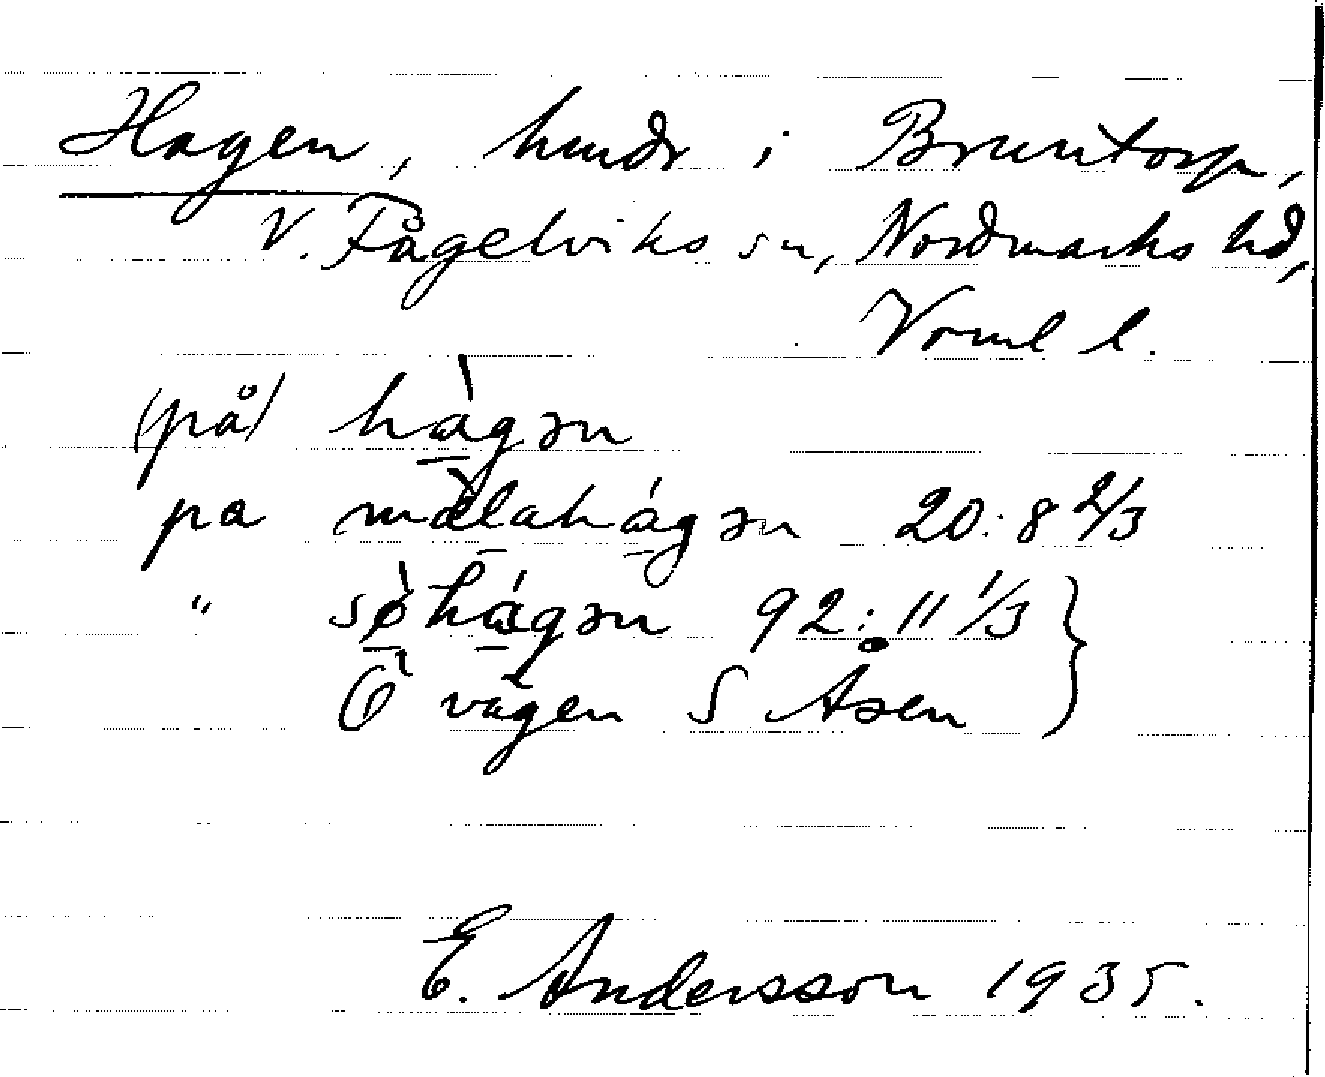 Hagen, hmdr i Bruntorp,
V. Fågelviks sn, Nordmarks hd,
Vrml l.
(på) hàgən
pa màlahágən 20:8 2/3
" sø̀hágən 92:11 1/3
Ö vägen S Åsen
E. Andersson 1935.